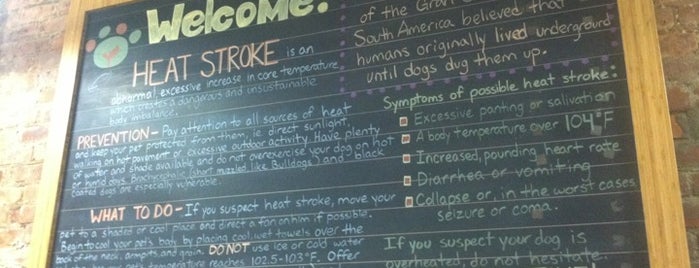 Welcome!
HEAT STROKE is an
abnormal, excessive increase in core temperature,
which creates a dangerous and unsustainable
body imbalance.
PREVENTION- Pay attention to all sources of heat
and keep your pet protected from them, ie. direct sunlight,
walking on hot pavement or excessive outdoor activity. Have plenty
of water and shade available and do not overexercise your dog on hot
or humid days. Brachycephalic (short muzzled like Bulldogs) and black
coated dogs are especially vulnerable.
WHAT TO DO - If you suspect heat stroke, move your
pet to a shaded or cool place and direct a fan on him if possible.
Begin to cool your pet's body by placing cool, wet towels over the
back of the neck, armpits, and groin. DO NOT use ice or cold water
temperature reaches 102.5-103°F. Offer
of the Gran
South America believed that
humans originally lived underground
until dogs dug them up.
Symptoms of possible heat stroke:
Excessive panting or salivation
A body temperature over 104°F
Increased, pounding heart rate
Diarrhea or vomiting
Collapse or, in the worst cases,
seizure or coma.
If you suspect your dog is
overheated, do not hesitate.